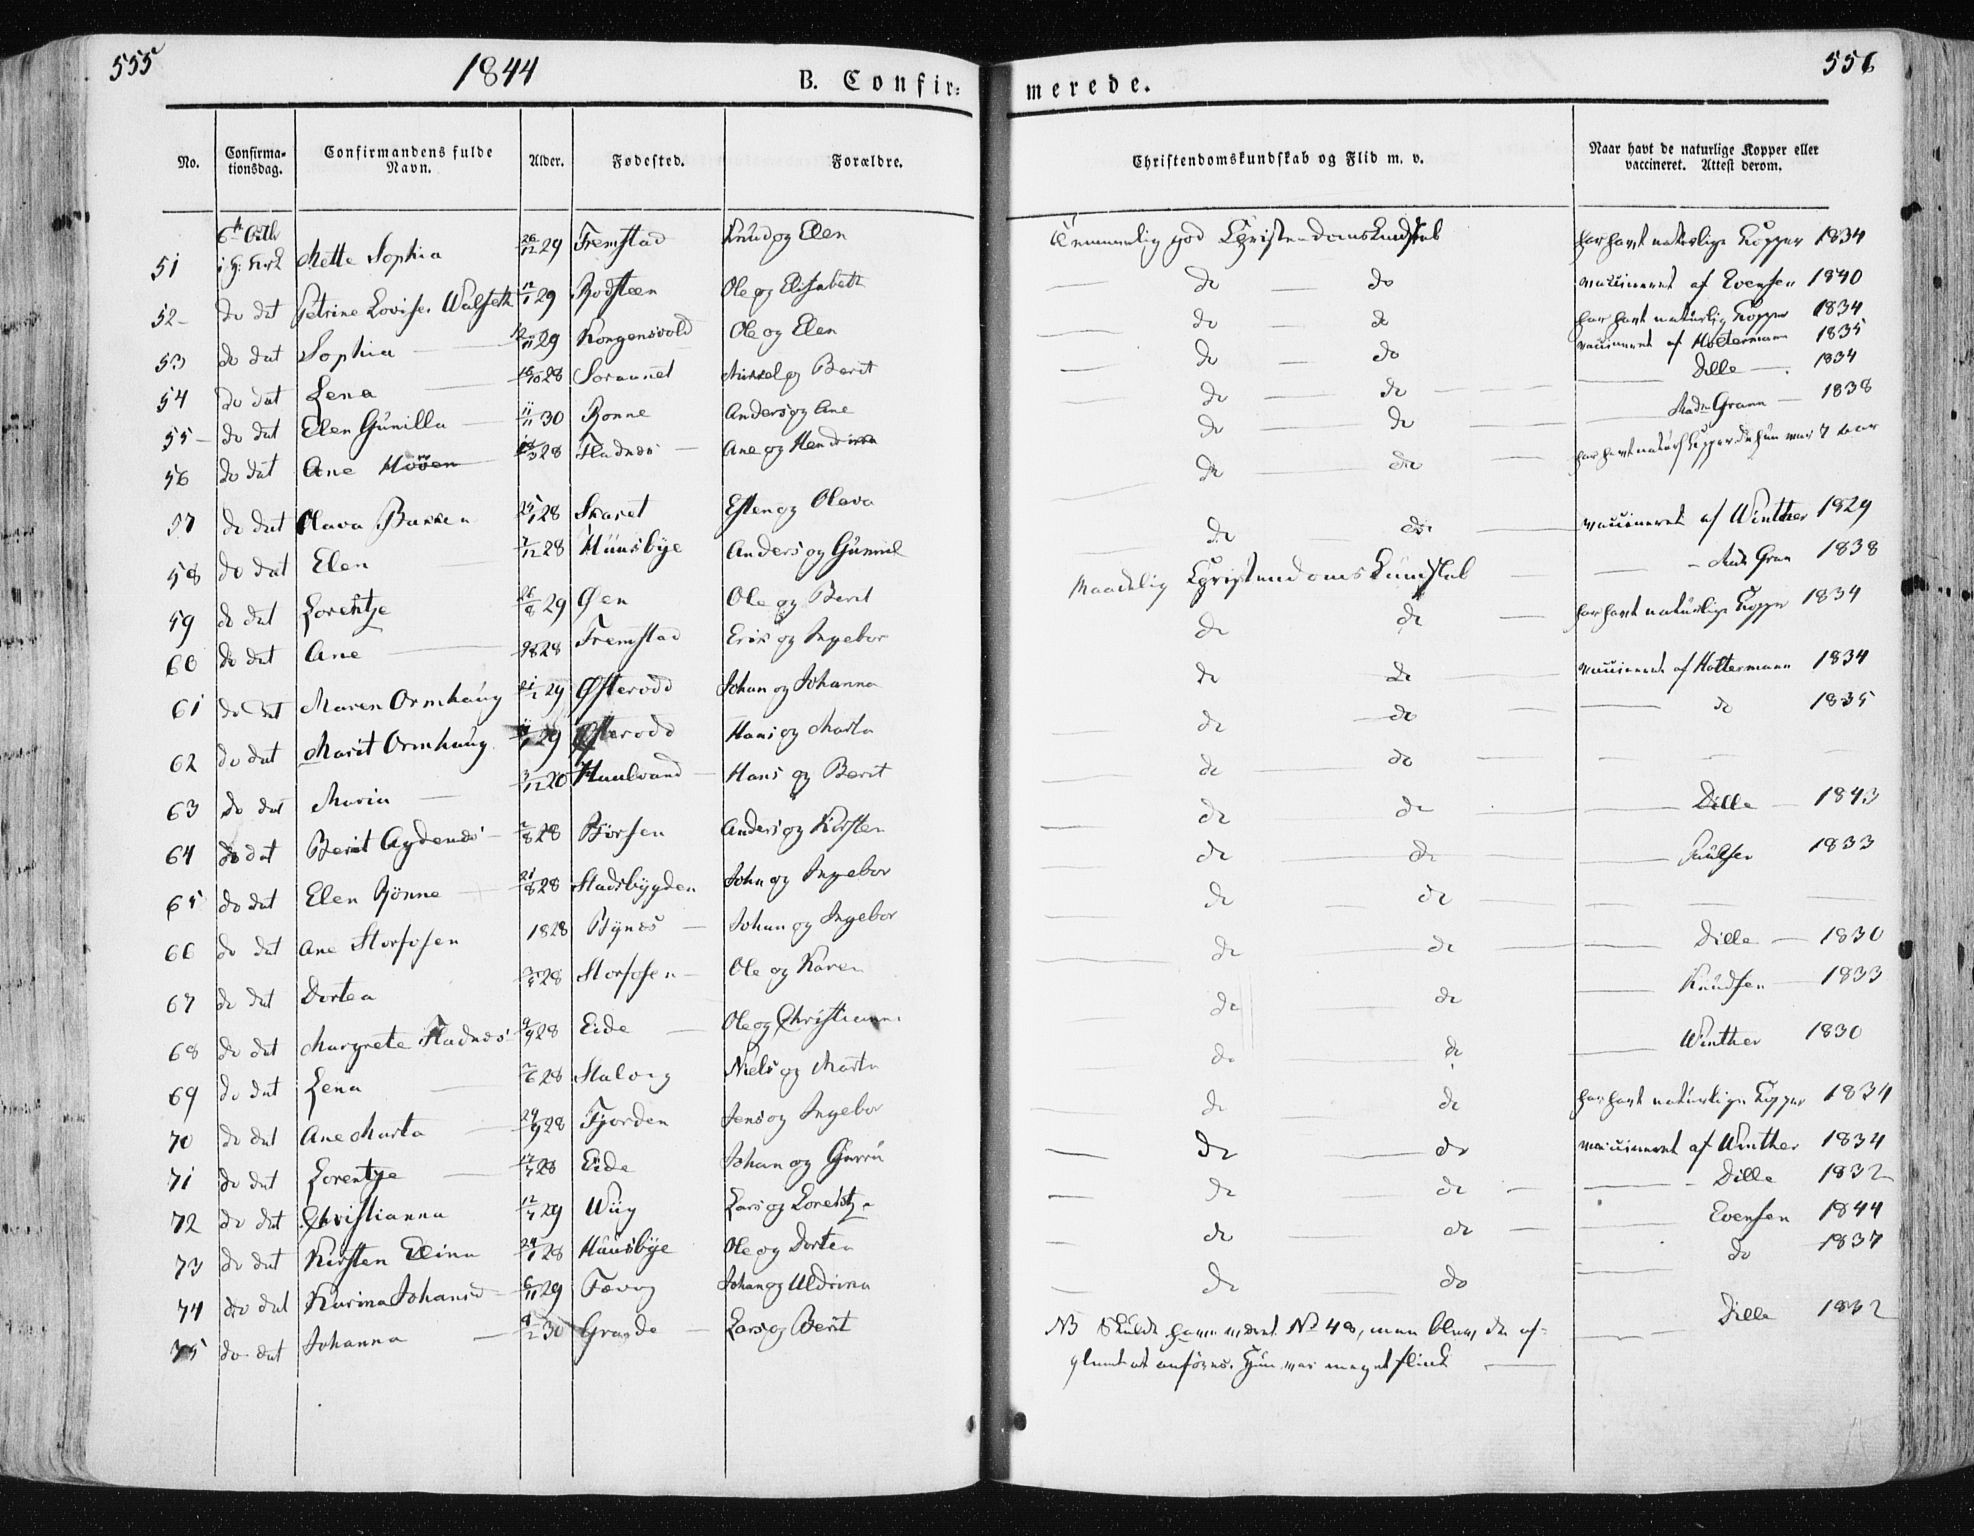 555 1844 B. Confir= merede. 556
No. Confirma=tionsdag. Confirmandens fulde Navn. Alder. Fødested. Forældre. Christendomskundskab og Flid m. v. Naar havt de naturlige Kopper eller vaccineret. Attest derom.
51 6te Octb Mette Sophia 26/12 29 Fremstad Knud og Elen Temmelig god Christendomskundskab har havt naturlige Kopper 1834
52 do dat Petrine Lovise Walseth 29 Bodsteen Ole og Elisabeth do do vaccineret af Evensen 1840
53 do dat Sophia 29 Kongensvold Ole og Elen do do har havt naturlig Kopper 1834
54 do dat Lena 28 Soraunet Mikkel og Berit do do vaccineret af Holtermann 1835
55 do dat Elen Gunilla 11/11 30 Rønne Anders og Ane do do Dille 1834
56 do dat Ane Hööen 28 Fladnes Ane og Hendrik do do Mad. Grann 1838
57 do dat Olava Bakken 28 Skaret Esten og Olava do do har havt naturl Kopper da hun var 7 aar
58 do dat Elen 7/12 28 Huusbye Anders og Gunnil do do vaccineret af Winther 1829
59 do dat Lorentze 26/8 29 Øen Ole og Berit Maadelig Christendomskundskab Mad Gran 1838
60 do dat Ane 28 Fremstad Erik og Ingebor do do har havt naturlige Kopper 1834
61 do dat Maren Ormhaug 29 Østerodd Johan og Johanna do do vaccineret af Holtermann 1834
62 do dat Marit Ormhaug 29 Østerodd Hans og Marta do do do 1835
63 do dat Maria 3/12 20 Haulvand Hans og Berit do do
64 do dat Berit Agdenes 2/8 28 Börsen Anders og Kirsten do do Dille 1843
65 do dat Elen Rønne 21/8 28 Stadsbygden John og Ingebor do do Paulsen 1833
66 do dat Ane Storfosen 1828 Bynæs Johan og Ingebor do do
67 do dat Dortea 28 Storfosen Ole og Karen do do Dille 1830
68 do dat Margrete Fladnes 9/9 28 Eide Ole og Christianna do do Knudsen 1833
69 do dat Lena 28 Stalong Niels og Marta do do Winther 1830
70 do dat Ane Marta 24/9 28 Fjorden Jens og Ingebor do do har havt naturlige Kopper 1834
71 do dat Lorentze 28 Eide Johan og Gurru do do vaccineret af Winther 1834
72 do dat Christianna 29 Wiig Lars og Lorentze do do Dille 1832
73 do dat Kirsten Elina 28 Huusbye Ole og Dortea do do Evensen 1844
74 do dat Karina Johansd 6/11 29 Fævog Johan og Uldrina do do do 1837
75 do dat Johanna 8/2 30 Grande Lars og Berit NB Skulde have været No 48, men blev da af=
glemt at anføres. Hun var meget flink Dille 1832